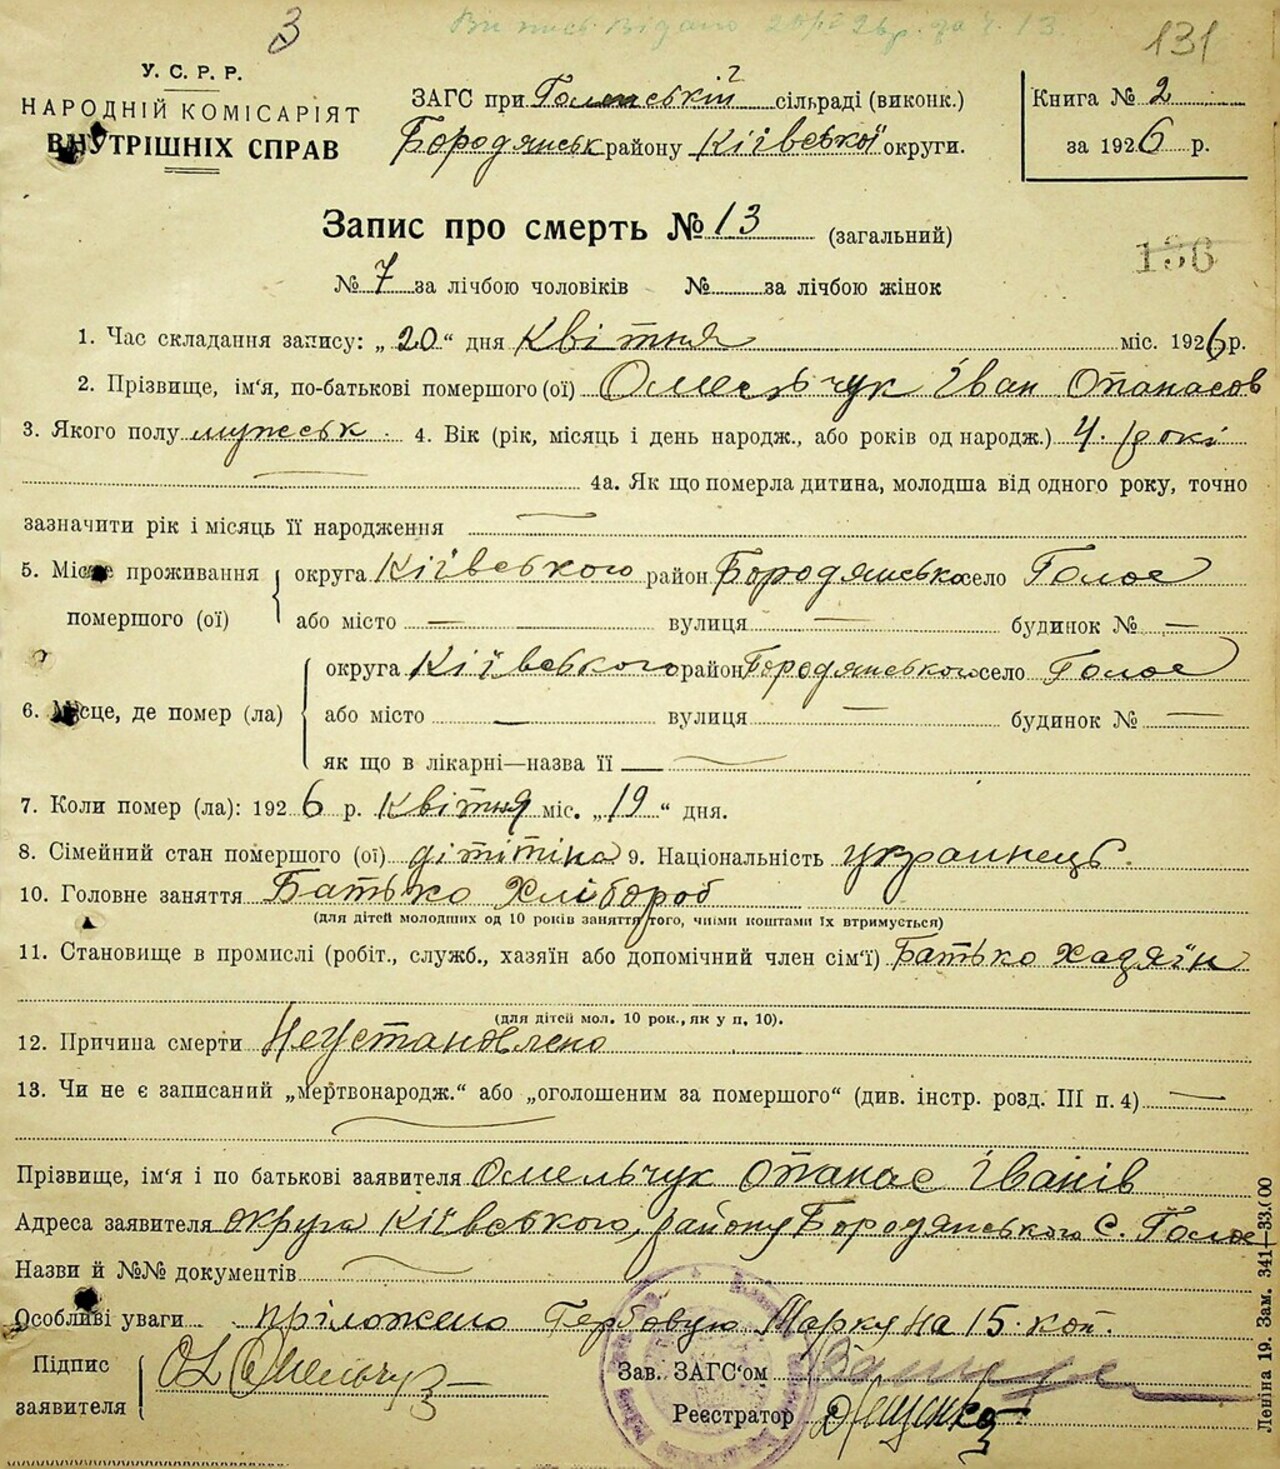 3 Випись Видано 131
У. С. Р. Р.
НАРОДНІЙ КОМІСАРІЯТ
ВНУТРІШНІХ СПРАВ
ЗАГС при сільраді (виконк.)
Бородянськ району Кіївської округи.
Книга № 2
за 1926 р.
Запис про смерть № 13 (загальний)
136
№ 7 за лічбою чоловіків № за лічбою жінок
1. Час складання запису: „20“ дня Квітня міс. 1926 р.
2. Прізвище, ім‘я, по-батькові помершого (ої) Омельчук Іван Опанасов
3. Якого полу мужеськ. 4. Вік (рік, місяць і день народж., або років од народж.) 4. рокі
4а. Як що померла дитина, молодша від одного року, точно
зазначити рік і місяць її народження —
5. Місце проживання помершого (ої) округа Кіївського район Бородянсько село Голое
або місто — вулиця — будинок № —
6. Місце, де помер (ла) округа Кіївського район Бородянського село Голое
або місто — вулиця — будинок № —
як що в лікарні—назва її —
7. Коли помер (ла): 1926 р. Квітня міс. „19“ дня.
8. Сімейний стан помершого (ої) дітітіна 9. Національність украинець.
10. Головне заняття Батько Хлібороб
(для дітей молодших од 10 років заняття того, чиїми коштами їх втримується)
11. Становище в промислі (робіт., служб., хазяїн або допомічний член сім‘ї) Батько хадяїн
(для дітей мол. 10 рок., як у п. 10).
12. Причина смерти Неустановлено
13. Чи не є записаний „мертвонародж.“ або „оголошеним за помершого“ (див. інстр. розд. III п. 4) —
Прізвище, ім‘я і по батькові заявителя Омельчук Опанас Іванів
Адреса заявителя округа Кіївського, району Бородянського С. Голое
Назви й №№ документів —
Особливі уваги пріложено Гербовую Марку на 15. коп.
Підпис заявителя О Омельчук
Зав. ЗАГС‘ом
Реєстратор
Леніна 19. Зам. 341—33.000